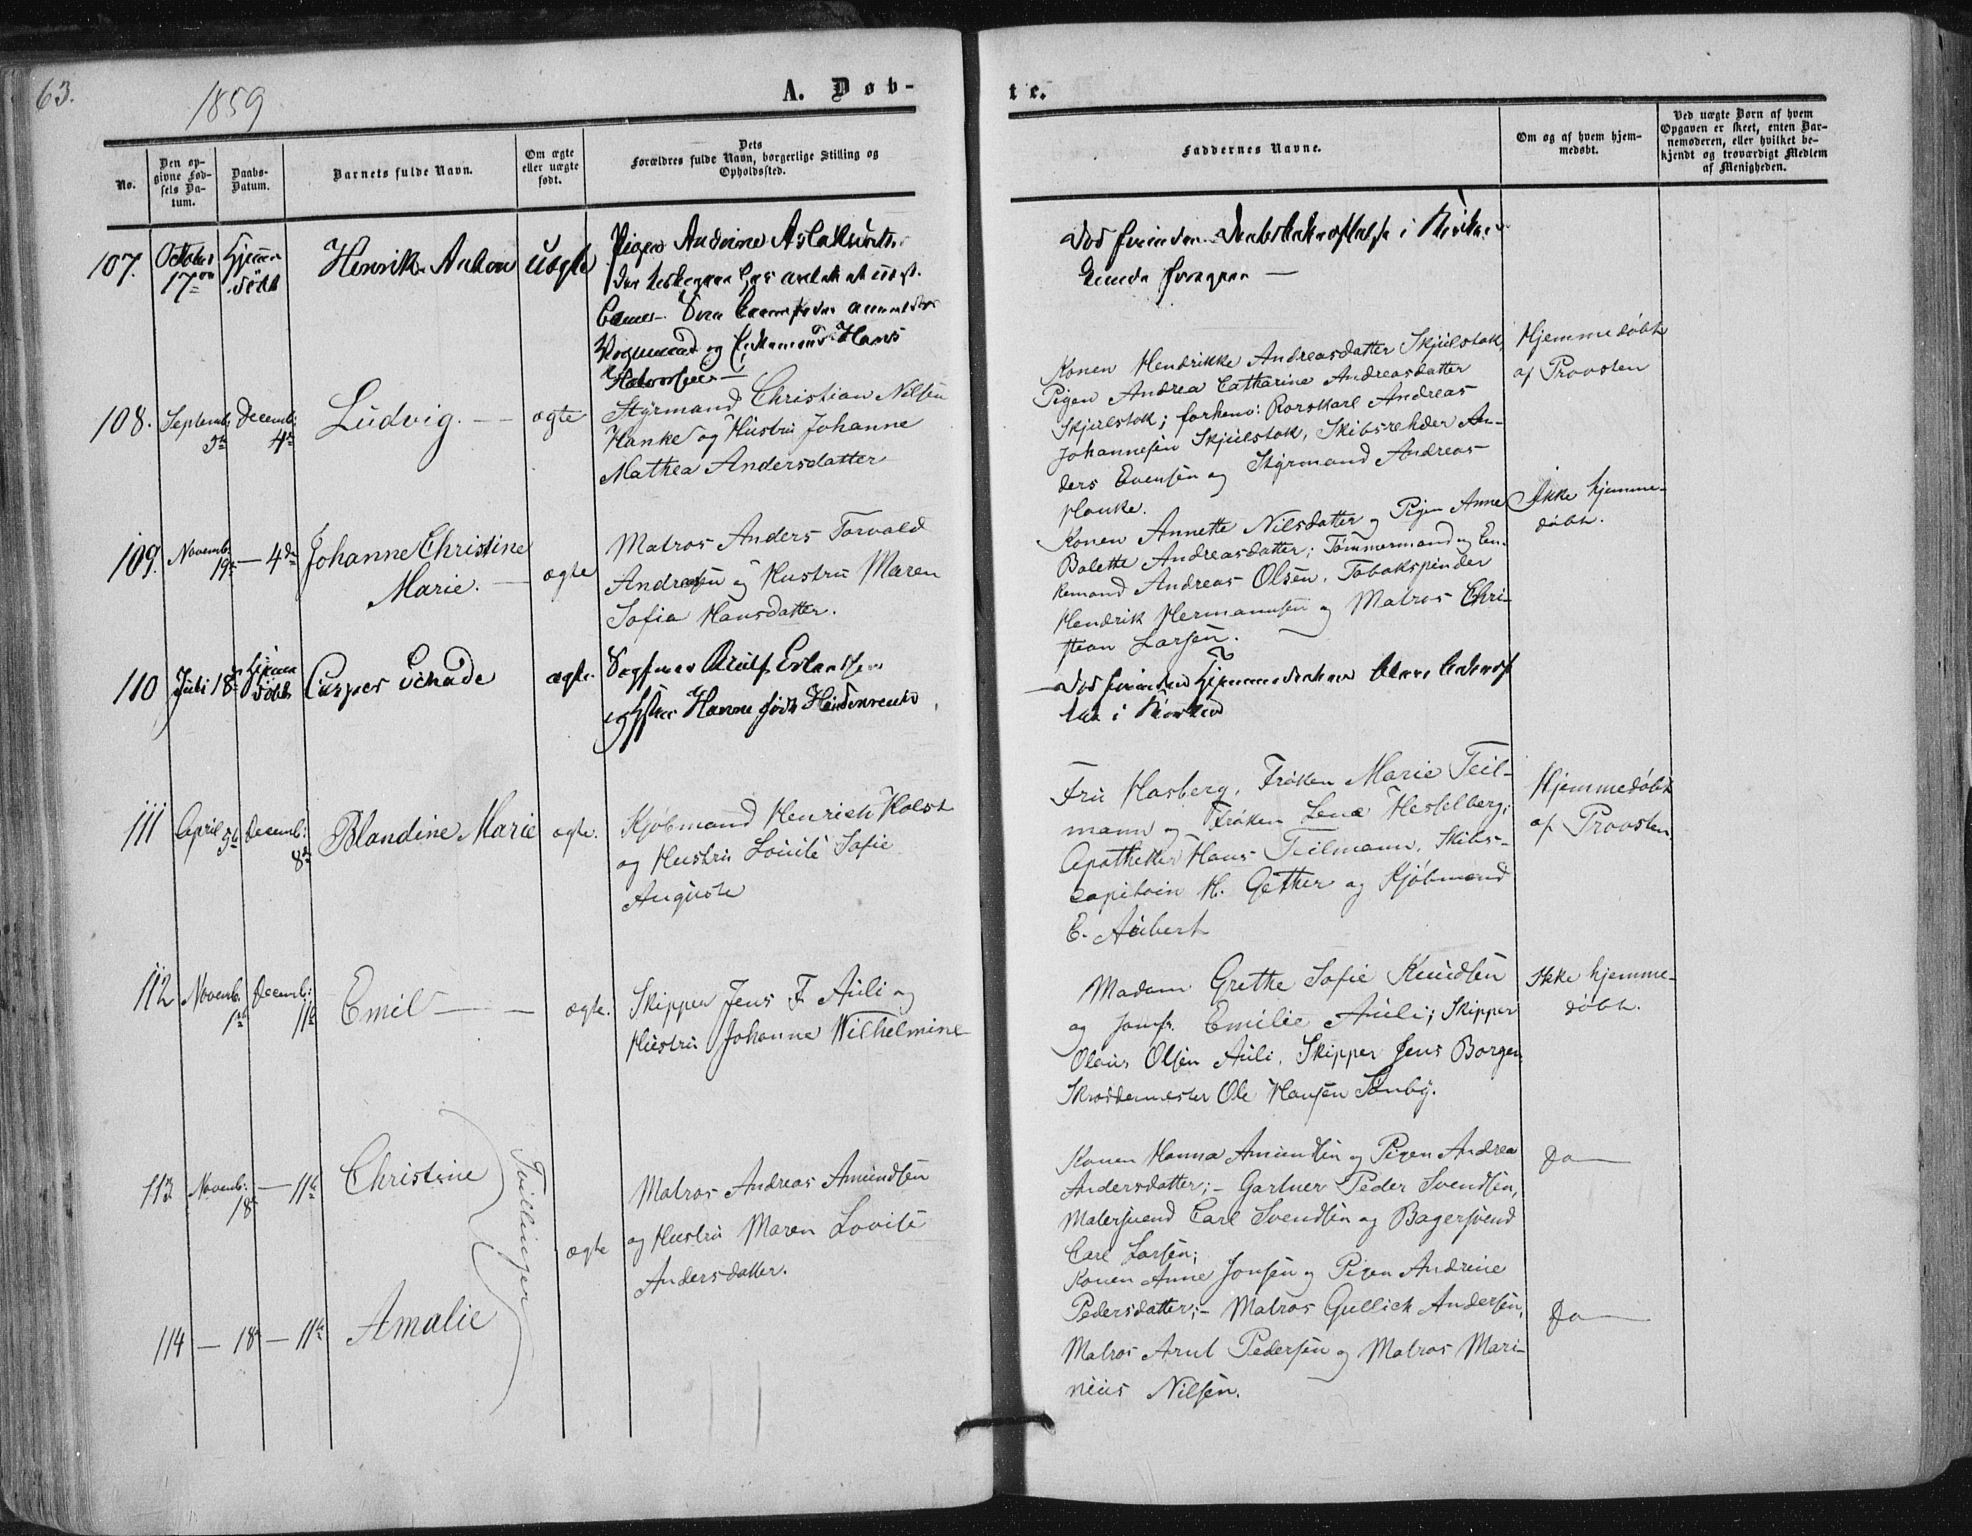 63.
1859
A. Døb-
te.
No.
Den op-
givne Fød-
sels Da-
tum.
Daabs-
Datum.
Barnets fulde Navn.
Om ægte
eller uægte
født.
Dets
Forældres fulde Navn, borgerlige Stilling og
Opholdssted.
Faddernes Navne.
Om og af hvem hjem-
medøbt.
Ved uægte Børn af hvem
Opgaven er skeet, enten Bar-
nemoderen, eller hvilket be-
kjendt og troværdigt Medlem
af Menigheden.
107.
October
17de
Hjemme-
døbt
Henrik Anton
Uægte
Pigen Andrine Aslaksdatter
og
Hans
Halvorsen —
Død forinden Daabsbekræftelse i Kirken
kunde foregaa —
108.
Septemb:
Decemb:
4de
Ludvig. —
ægte
Styrmand Christian Nilsen
Hanke og Hustru Johanne
Mathea Andersdatter
Konen Hendrikke Andreasdatter Skjulstok,
Pigen Andrea Catharine Andreasdatter
Skjulstok; forhenv: Rorskarl Andreas
Johannesen Skjulstok, Skibsrehder An-
ders Evensen og Styrmand Andreas
Hanke.
Hjemmedøbt
af Provsten
109.
Novemb:
19de
— 4de
Johanne Christine
Marie. —
ægte
Matros Anders Torvald
Andresen og Hustru Maren
Sofia Hansdatter.
Konen Annette Nilsdatter og Pigen Anne
Bolette Andreasdatter; Tømmermand og En-
kemand Andreas Olsen, Tobakspinder
Hendrik Hermannsen og Matros Chri-
stian Larsen.
Ikke hjemme-
døbt.
110
Juli 18de
Hjemme
døbt
Casper Schade
ægte.
Erlandsen
Hanne født Heidenreich
i Kirken
111
April 5te
Decemb:
8de
Blandine Marie
ægte.
Kjøbmand Henrich Holst
og Hustru Lovise Sofie
Auguste
Fru Hasberg, Frøken Marie Teil-
mann og Frøken Lena Hesselberg;
Apotheker Hans Teilmann, Skibs-
capitain H. Gether og Kjøbmand
E. Aubert
Hjemmedøbt
af Provsten.
112
Novemb.
1ste
Decemb:
11te
Emil —
ægte.
Skipper Jens F. Auli og
Hustru Johanne Wilhelmine
Madam Grethe Sofie Knudsen
og Jomfr. Emilie Auli; Skipper
Olaus Olsen Auli, Skipper Jens Borgen
Skræddermester Ole Hansen Sønby.
Ikke hjemme-
døbt.
113
Novemb:
18de
— 11te
Christine
Tvillinger
ægte
Matros Andreas Amundsen
og Hustru Maren Lovise
Andersdatter.
Konen Hanna Amundsen og Pigen Andrea
Andersdatter; — Gartner Peder Svendsen,
Malersvend Carl Svendsen og Bagersvend
Carl Larsen;
Do —
114 — 18de — 11te
Amalie
Konen Anne Jonsen og Pigen Andrine
Pedersdatter; — Matros Gullich Andersen,
Matros Arnt Pedersen og Matros Mari-
nius Nilsen.
Do —